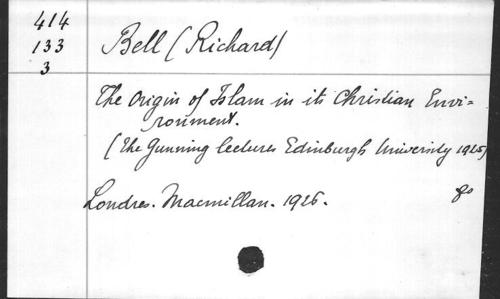 414
133
3
Bell (Richard)
The Origin of Islam in its Christian Envi=
ronment.
(The Gunning lectures Edinburgh University 1925)
Londres. Macmillan. 1926. 8o